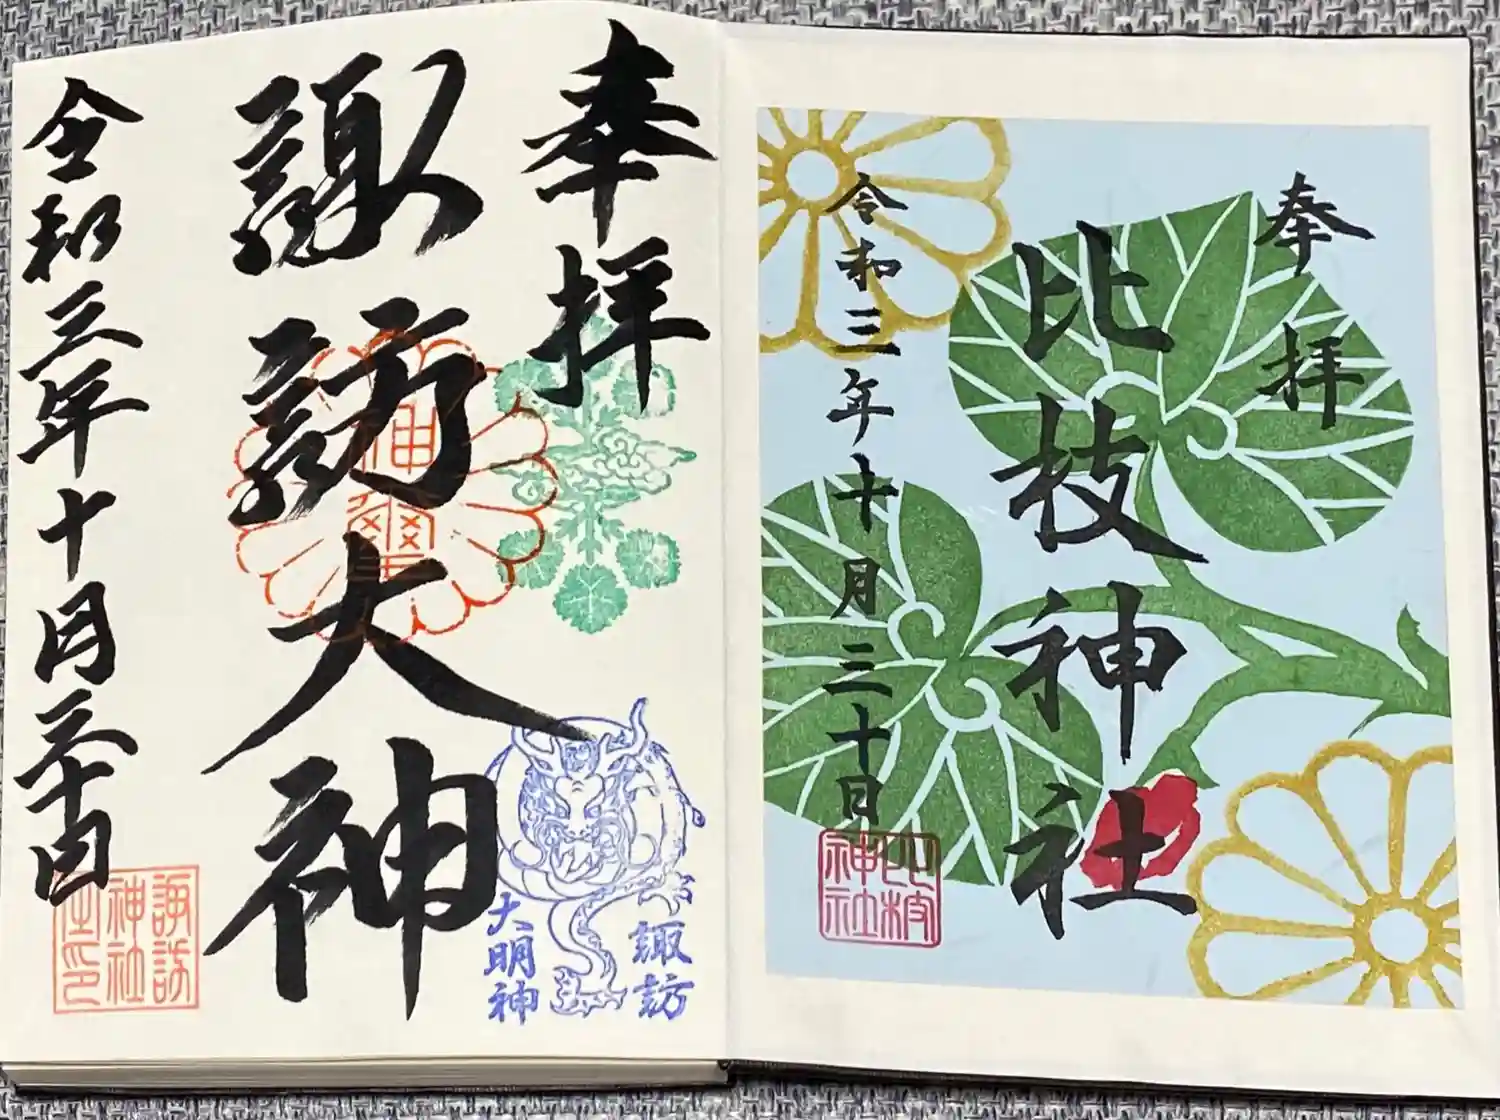 奉拝
比枝神社
令和三年十月三十日
比枝
神社
奉拝
諏訪大神
神璽
諏訪
大明神
令和三年十月三十日
諏訪
神社
之印